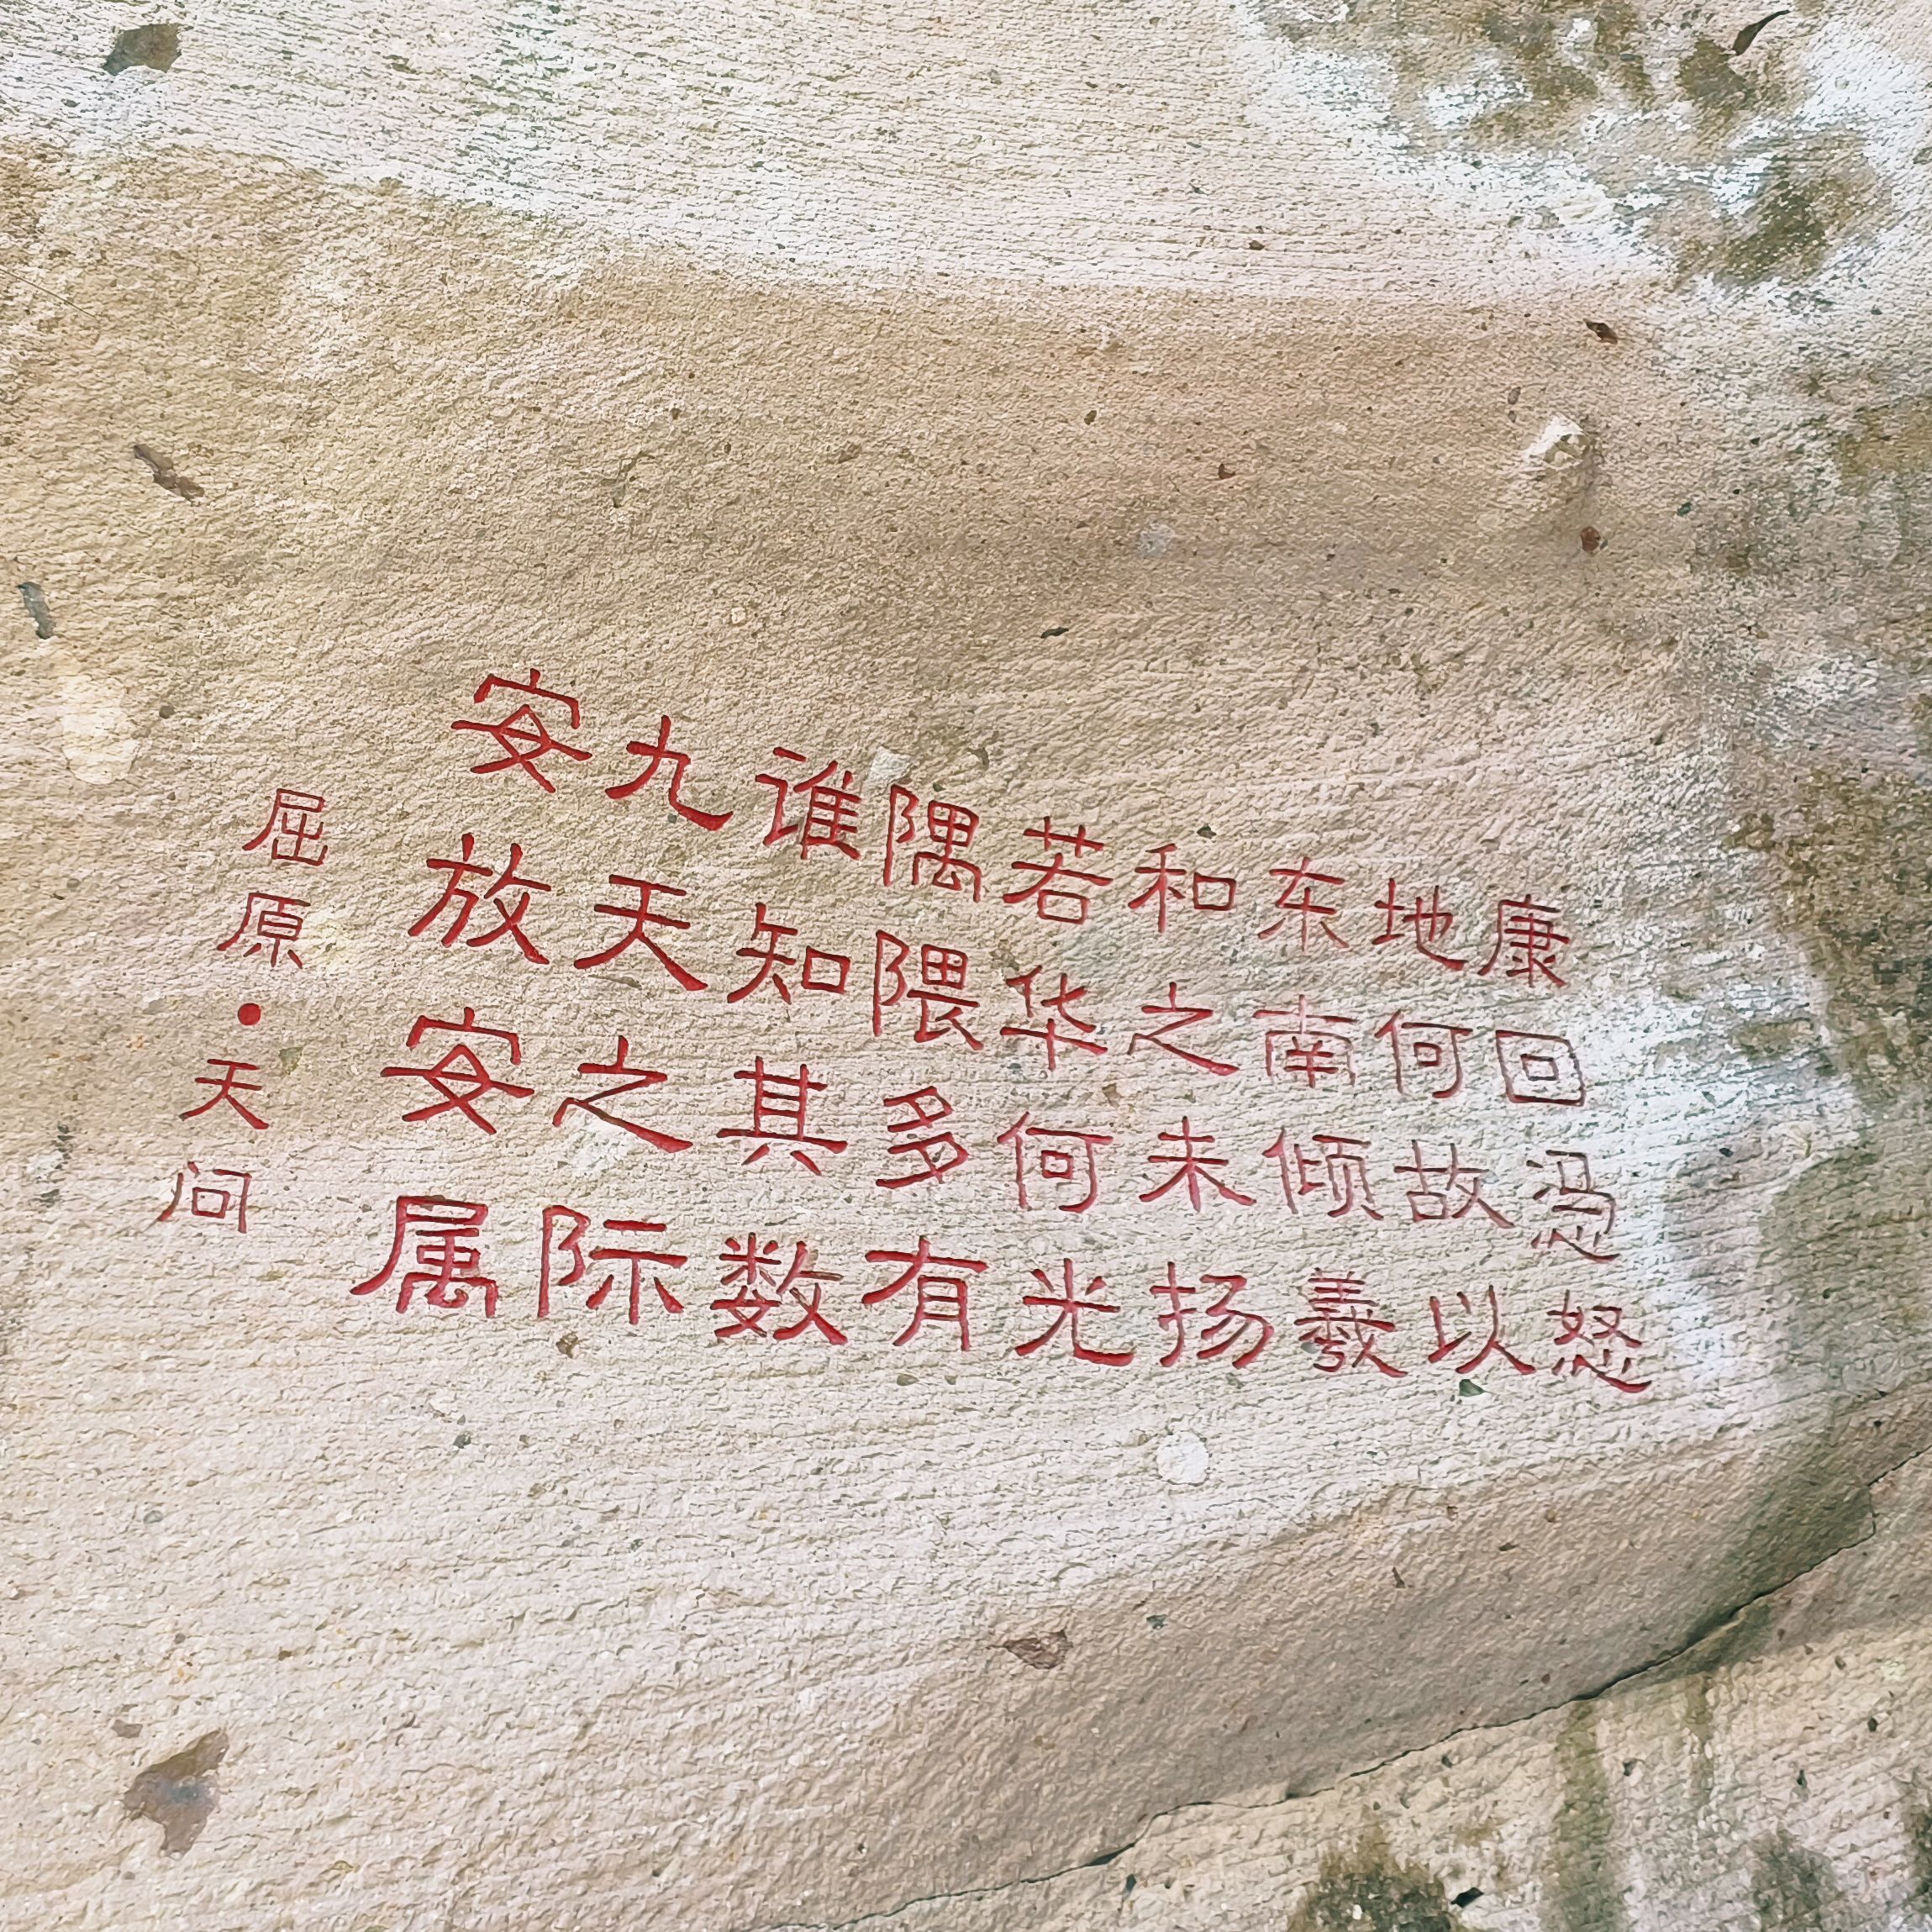 康回憑怒
地何故以
东南倾羲
和之未扬
若华何光
隅隈多有
谁知其数
九天之际
安放安属
屈原·天问